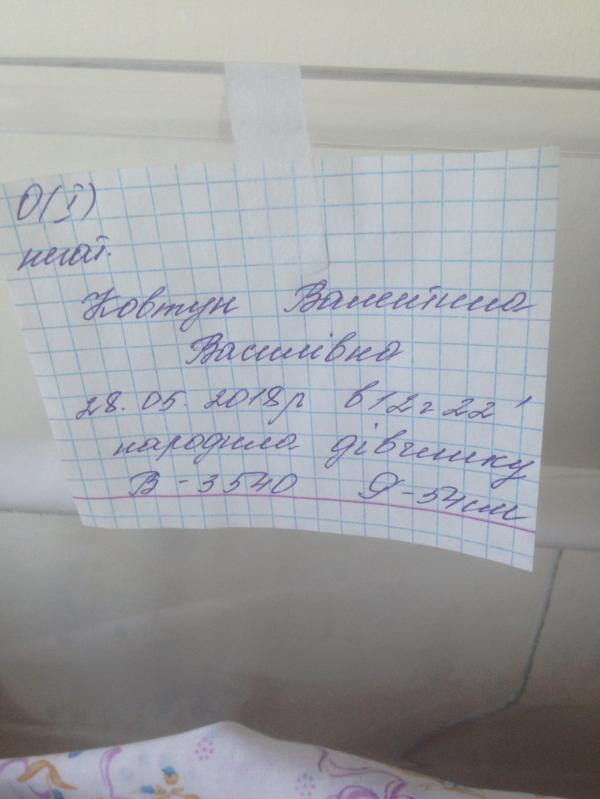 О(I)
негат.
Ковтун Валентина
Василівна
28.05.2018р в 12г 22'
народила дівчинку
В - 3540 Д - 54см